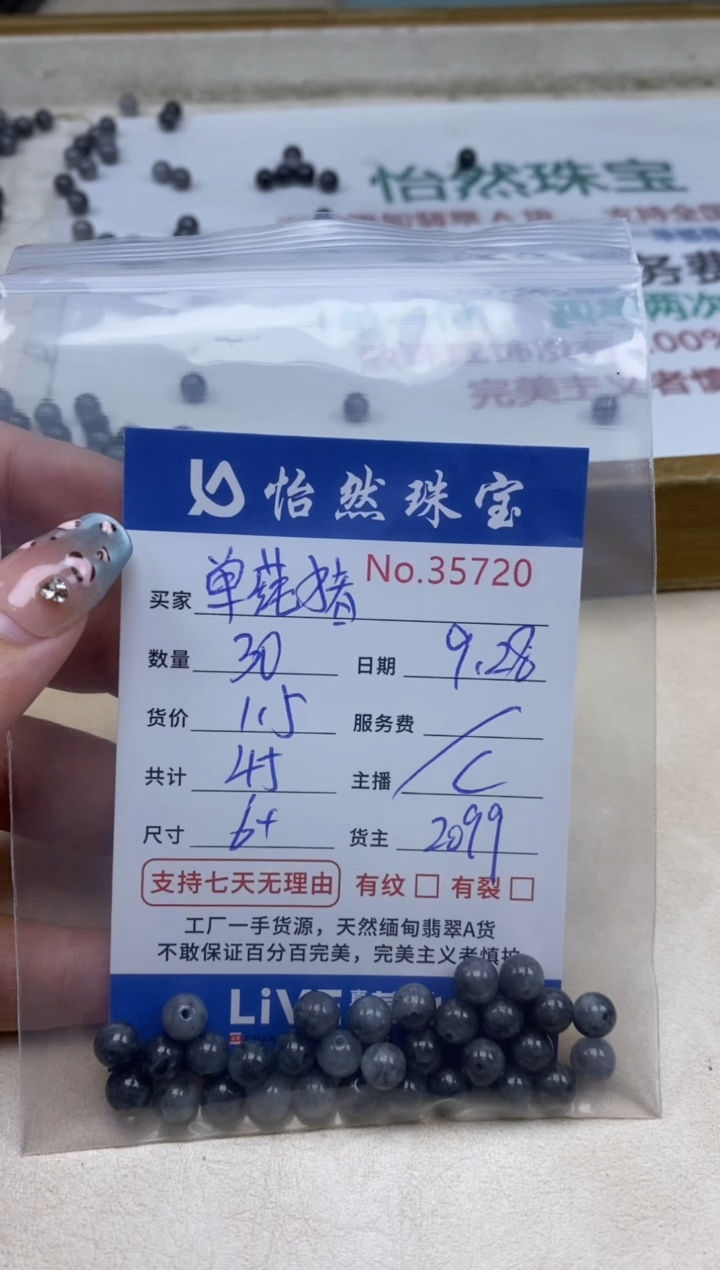 怡然珠宝
务费
两次
100%
完美主义者慎
怡然珠宝
No.35720
买家
数量 30 日期 9.28
货价 1.5 服务费 /
共计 45 主播 C
尺寸 6+ 货主 2099
支持七天无理由 有纹 有裂
工厂一手货源，天然缅甸翡翠A货
不敢保证百分百完美，完美主义者慎拍
LiVE